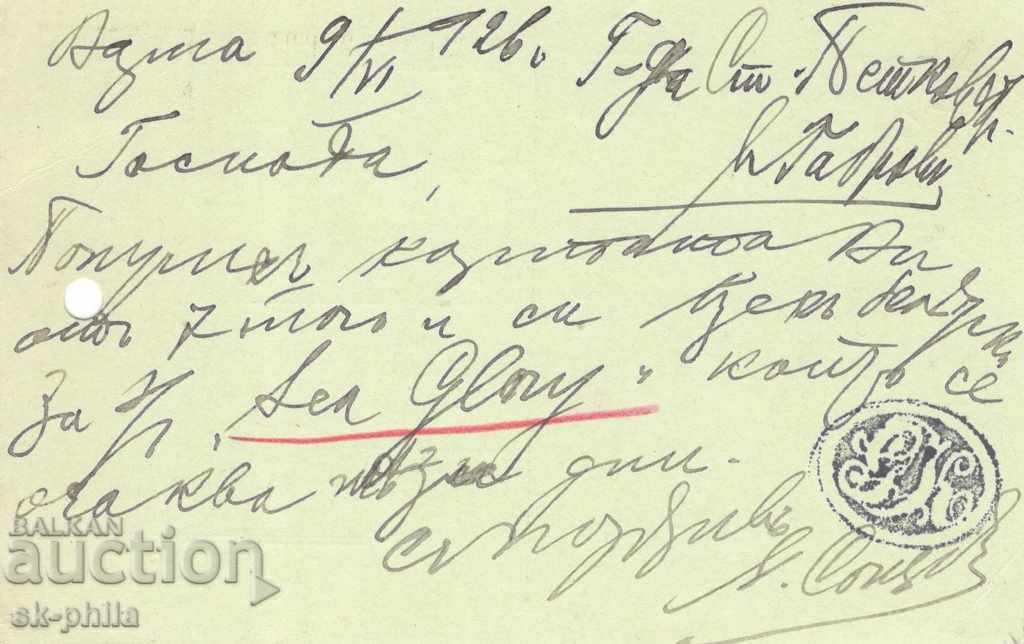 9/VI 926. Г-да Ст. Петковъ
Габрово
Господа,
Получихъ картата Ви
отъ 7 того и си
за п/ "Sea Glory" който се
очаква тези дни.
съ поздравъ
BALKAN
auction
sk-phila